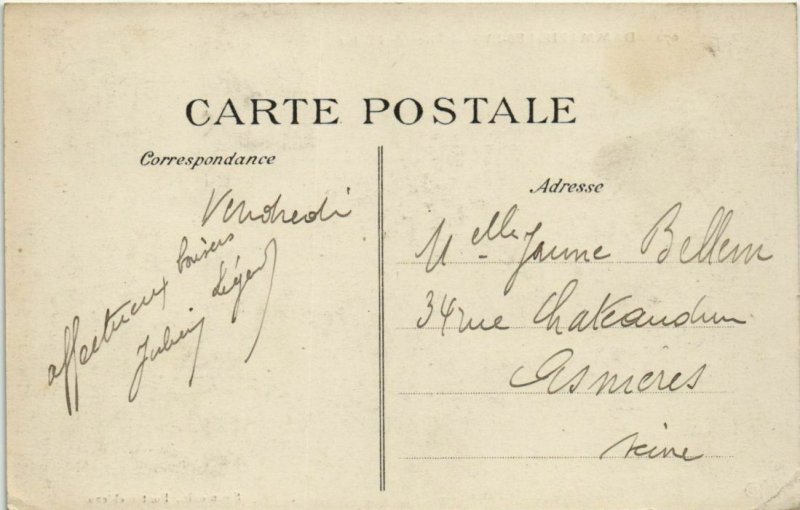 CARTE POSTALE
Correspondance
Vendredi
affectueux baisers
Julien Léger
Adresse
Melle Jeanne Bellem
34 rue Chateaudun
Asnières
Seine